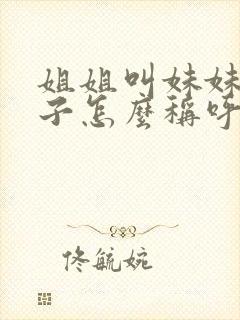 姐姐叫妹妹
子怎麼稱呼
佟毓婉